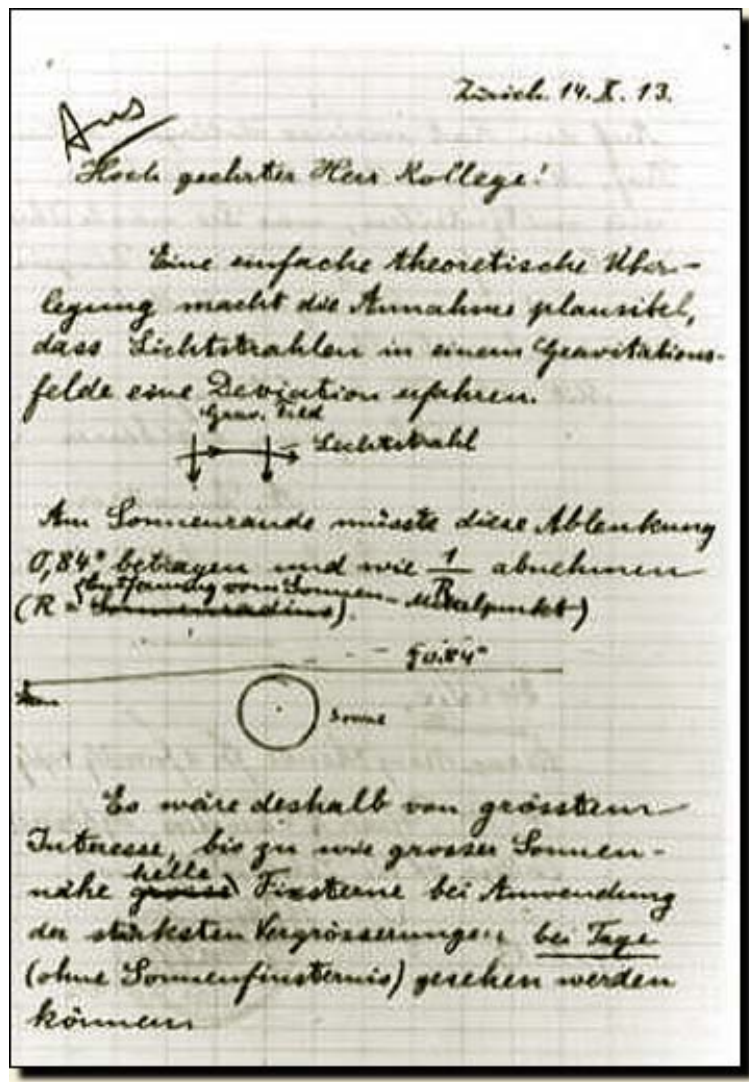 Zürich. 14. X. 13.
Aus
Hoch geehrter Herr Kollege!
Eine einfache theoretische Über-
legung macht die Annahme plausibel,
dass Lichtstrahlen in einem Gravitations-
felde eine Deviation erfahren.
Grav. Feld
Lichtstrahl
Am Sonnenrande müsste diese Ablenkung
0,84" betragen und wie 1/R abnehmen
Entfernung vom Sonnen-Mittelpunkt)
(R = Sonnenradius).
0.84"
Stern
Sonne
Es wäre deshalb von grösstem
Interesse, bis zu wie grosser Sonnen-
helle
nähe grosse Fixsterne bei Anwendung
der stärksten Vergrösserungen bei Tage
(ohne Sonnenfinsternis) gesehen werden
können.